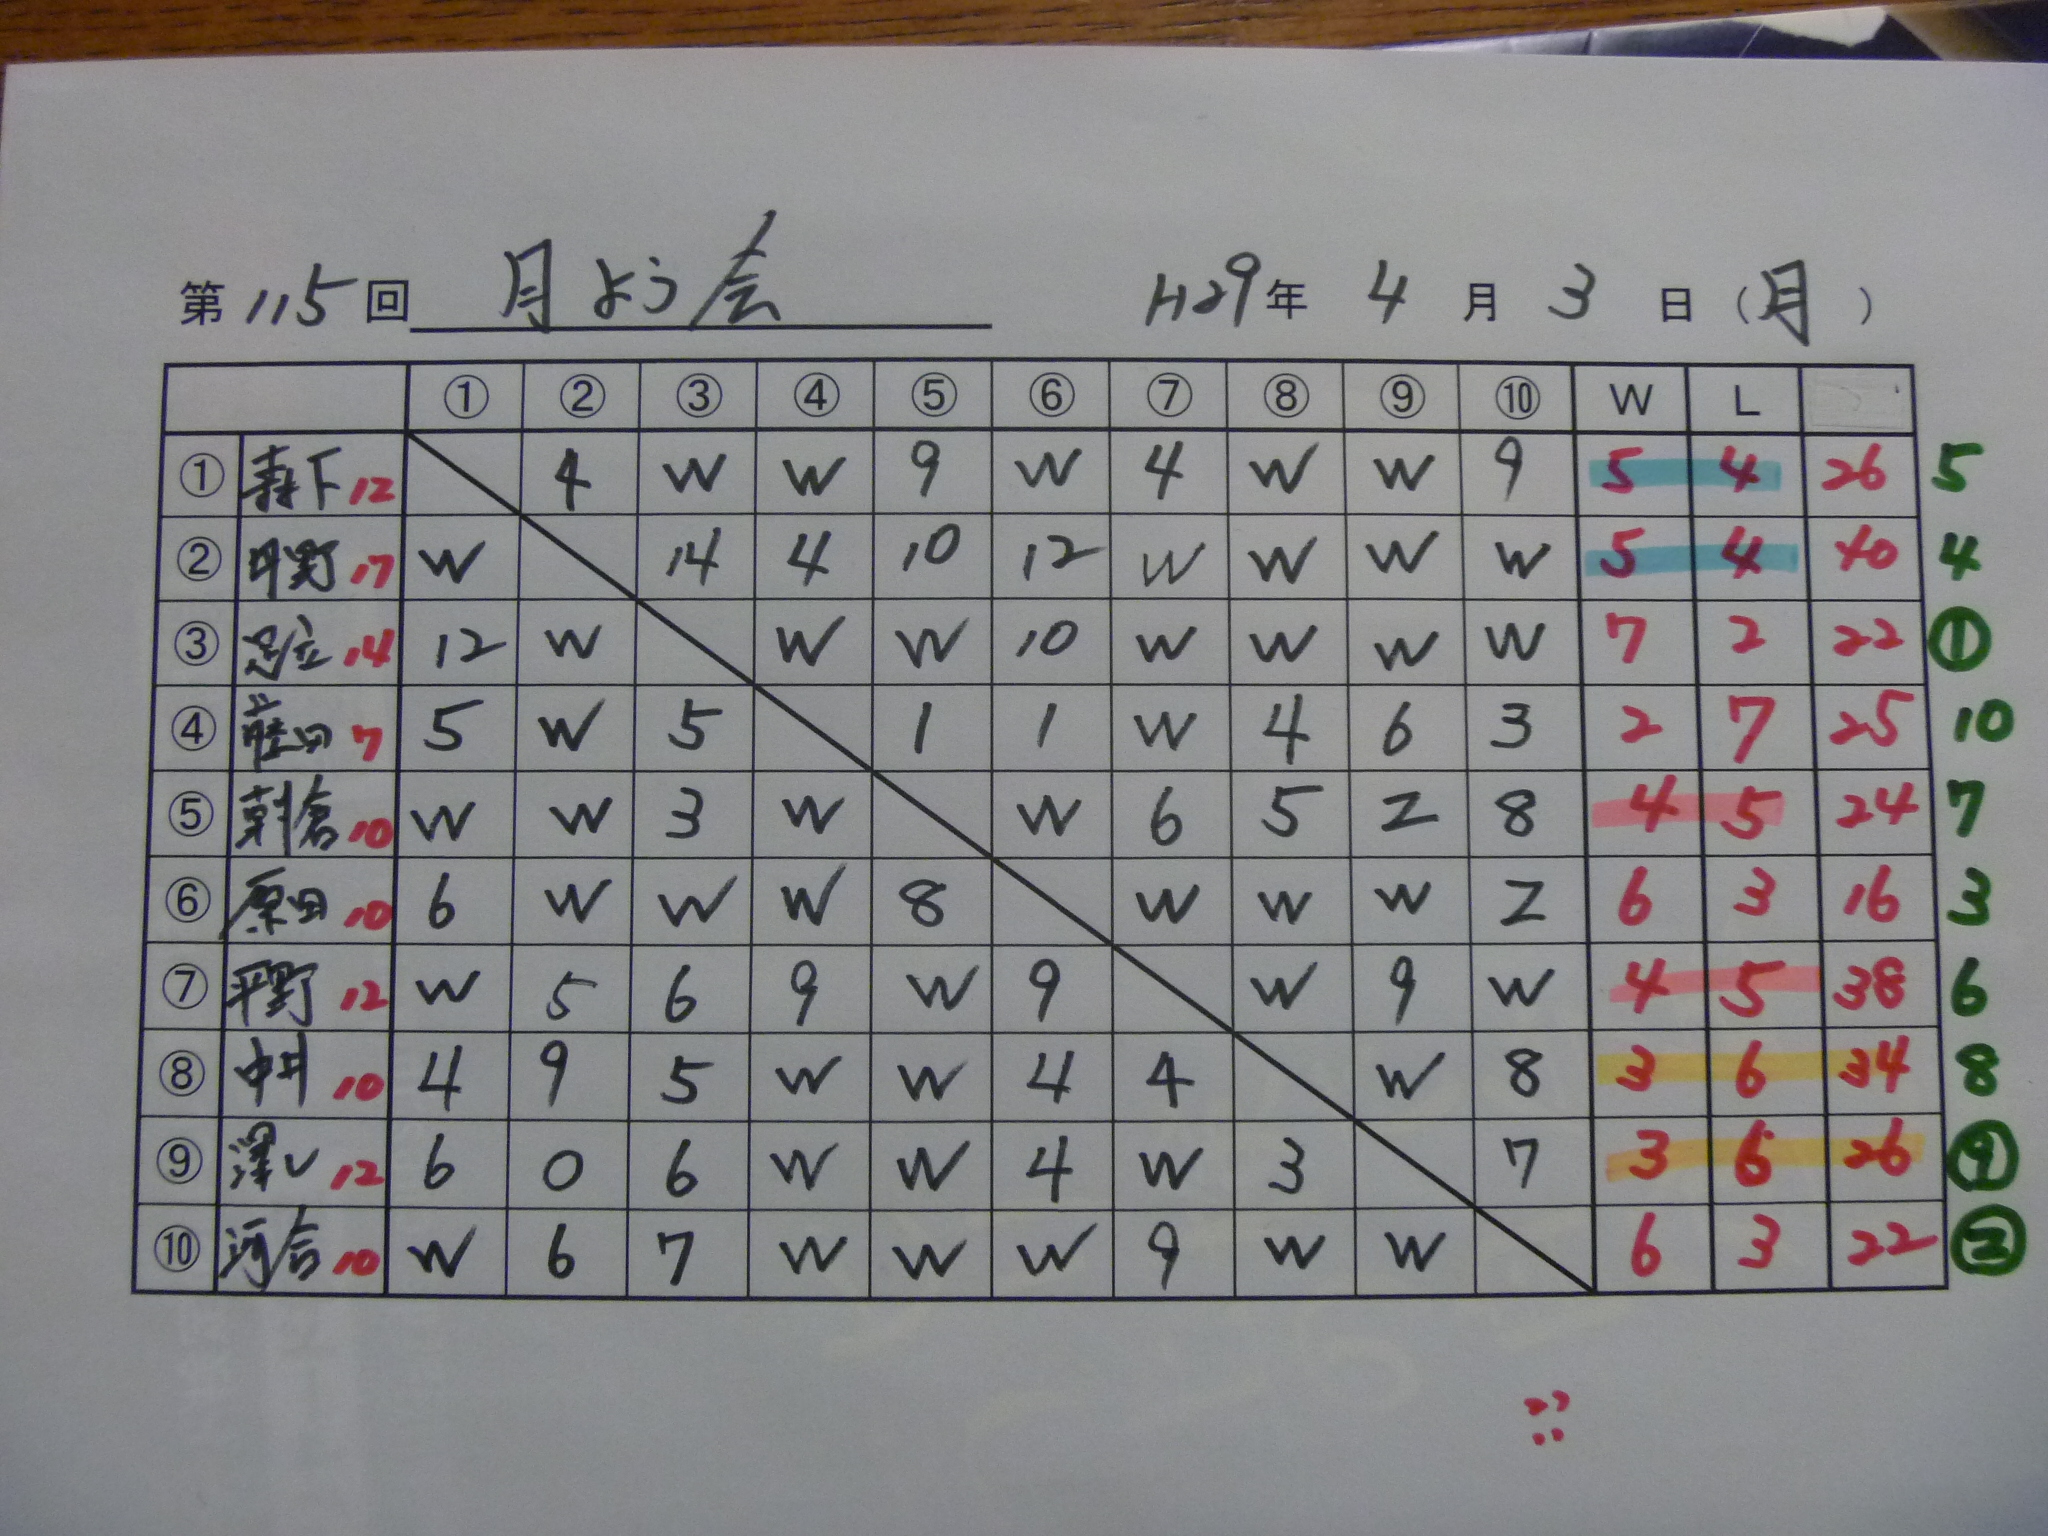 第115回 月よう会 H29年 4月 3日(月)
① ② ③ ④ ⑤ ⑥ ⑦ ⑧ ⑨ ⑩ W L
① 森下 12 4 W W 9 W 4 W W 9 5 4 26 5
② 丹野 17 W 14 4 10 12 W W W W 5 4 40 4
③ 足立 14 12 W W W 10 W W W W 7 2 22 ①
④ 田 7 5 W 5 1 1 W 4 6 3 2 7 25 10
⑤ 朝倉 10 W W 3 W W 6 5 2 8 4 5 24 7
⑥ 原田 10 6 W W W 8 W W W 2 6 3 16 3
⑦ 平野 12 W 5 6 9 W 9 W 9 W 4 5 38 6
⑧ 中井 10 4 9 5 W W 4 4 W 8 3 6 34 8
⑨ 澤 12 6 0 6 W W 4 W 3 7 3 6 26 ⑨
⑩ 河合 10 W 6 7 W W W 9 W W 6 3 22 ②